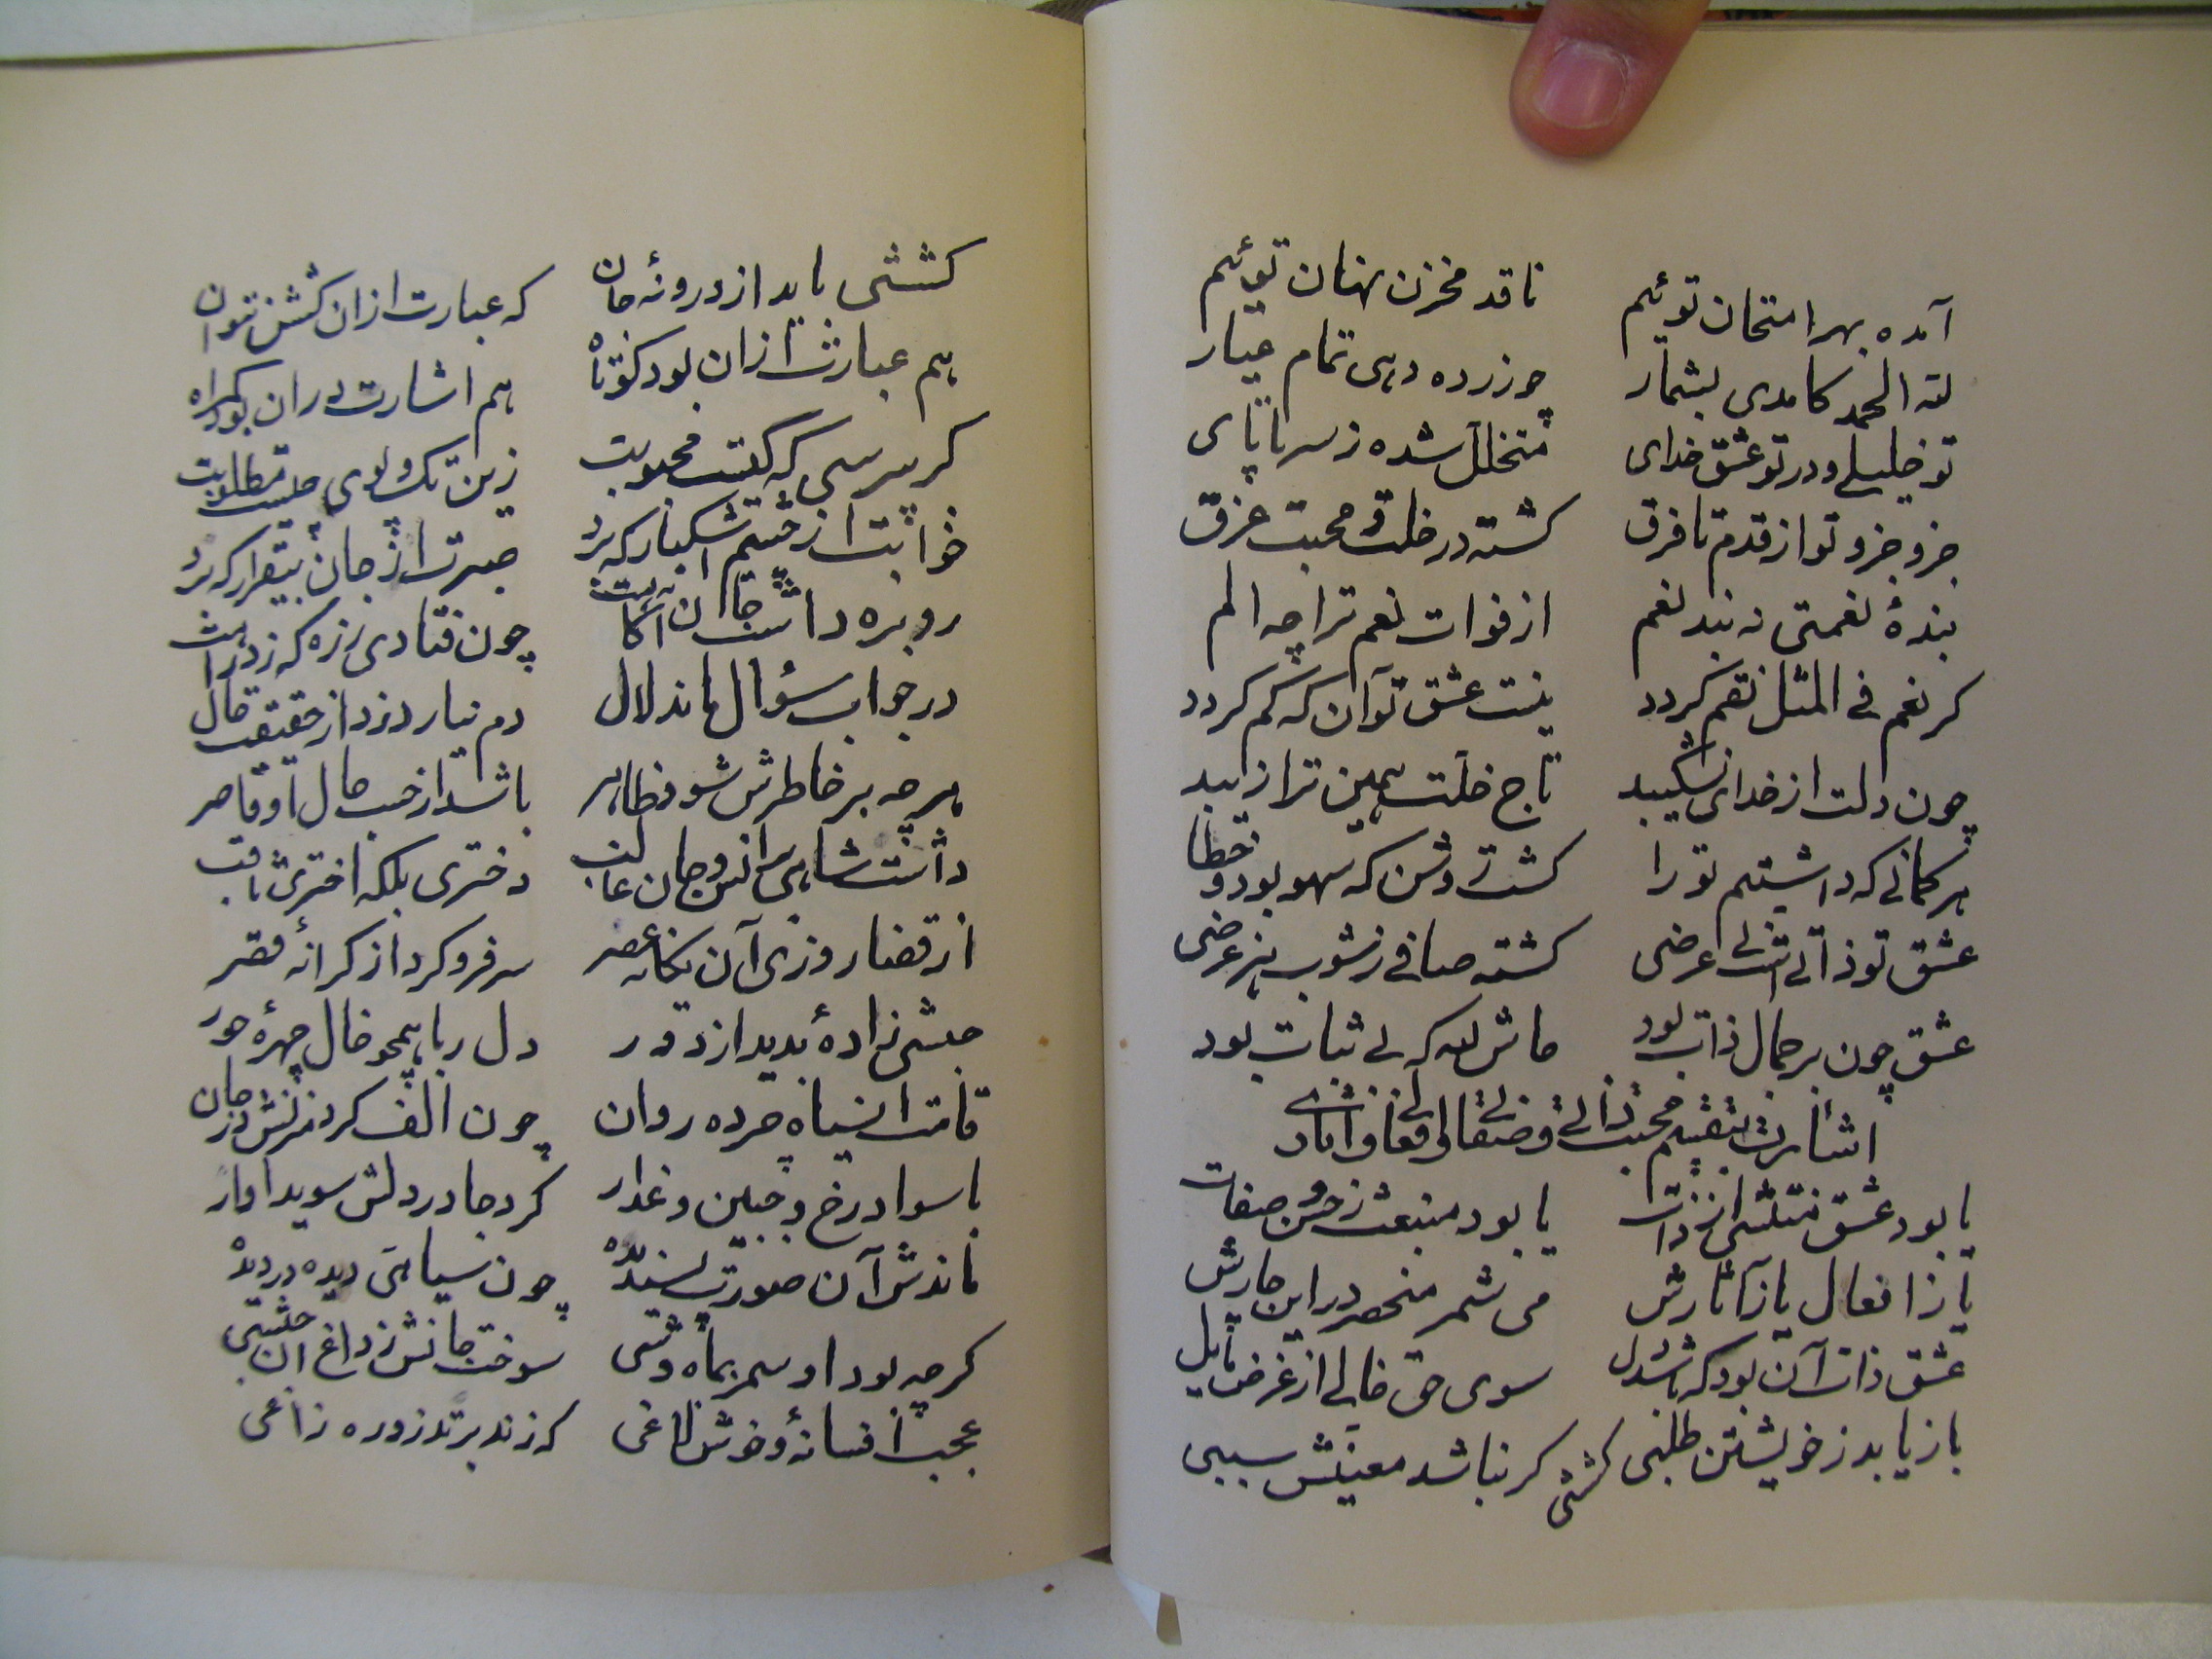 آمده بهر امتحان توئیم ناقد مخزن نهان توئیم
لله الحمد کامدی بشمار چو زر ده دهی تمام عیار
تو خلیلی و در تو عشق خدای متخلل شده ز سر تا پای
جزو جزو تو از قدم تا فرق گشته در خلت و محبت غرق
بندهٔ نعمتی نه بند نعم از فوات نعم ترا چه الم
گر نعم فی المثل نقم گردد نیست عشق تو آن که کم گردد
چون دلت از خدای نشکیبد تاج خلت همین ترا زیبد
هر گمانی که داشتیم تو را گشت روشن که سهو بود و خطا
عشق تو ذاتی است نی عرضی گشته صافی ز شوب هر غرضی
عشق چون بر جمال ذات بود حاش لله که بی ثبات بود
اشارت بتقسیم محبت ذاتی و صفاتی و افعالی و آثاری
یا بود عشق منتشی از ذات یا بود منبعث ز حسن صفات
یا ز افعال یا ز آثارش می شمر منحصر در این چارش
عشق ذات آن بود که باشد دل سوی حق خالی از غرض مایل
باز یابد ز خویشتن طلبی گر نباشد معینش سببی
کششی
کششی باید از درونهٔ جان که عبارت از آن کشش نتوان
هم عبارت از آن بود کوتاه هم اشارت در آن بود گمراه
گر بپرسی که کیست محبوبت زین تک و پوی چیست مطلوبت
خوابت از چشم اشکبار که برد صبرت از جان بیقرار که برد
چون فتادی ز ره که زد راهت
در جواب سؤال ماند لال دم نیارد زد از حقیقت حال
هر چه بر خاطرش شود ظاهر باشد از حسب حال او قاصر
داشت شاهی بر انس و جان غالب دختری بلکه اختری ثاقب
از قضا روزی آن یگانه عصر سر فرو کرد از کرانهٔ قصر
حبشی زادهٔ بدید از دور دل ربا همچو خال چهرهٔ حور
قامت آن سیاه چرده روان چون الف کرد منزلش در جان
با سواد رخ و جبین و عذار کرد جا در دلش سویدا وار
ماندش آن صورت پسندیده چون سیاهی دیده در دیده
گرچه بود او سمر بماه وشی سوخت جانش ز داغ آن حبشی
عجب افسانهٔ و خوش لاغی که زند بر تذرو ره زاغی